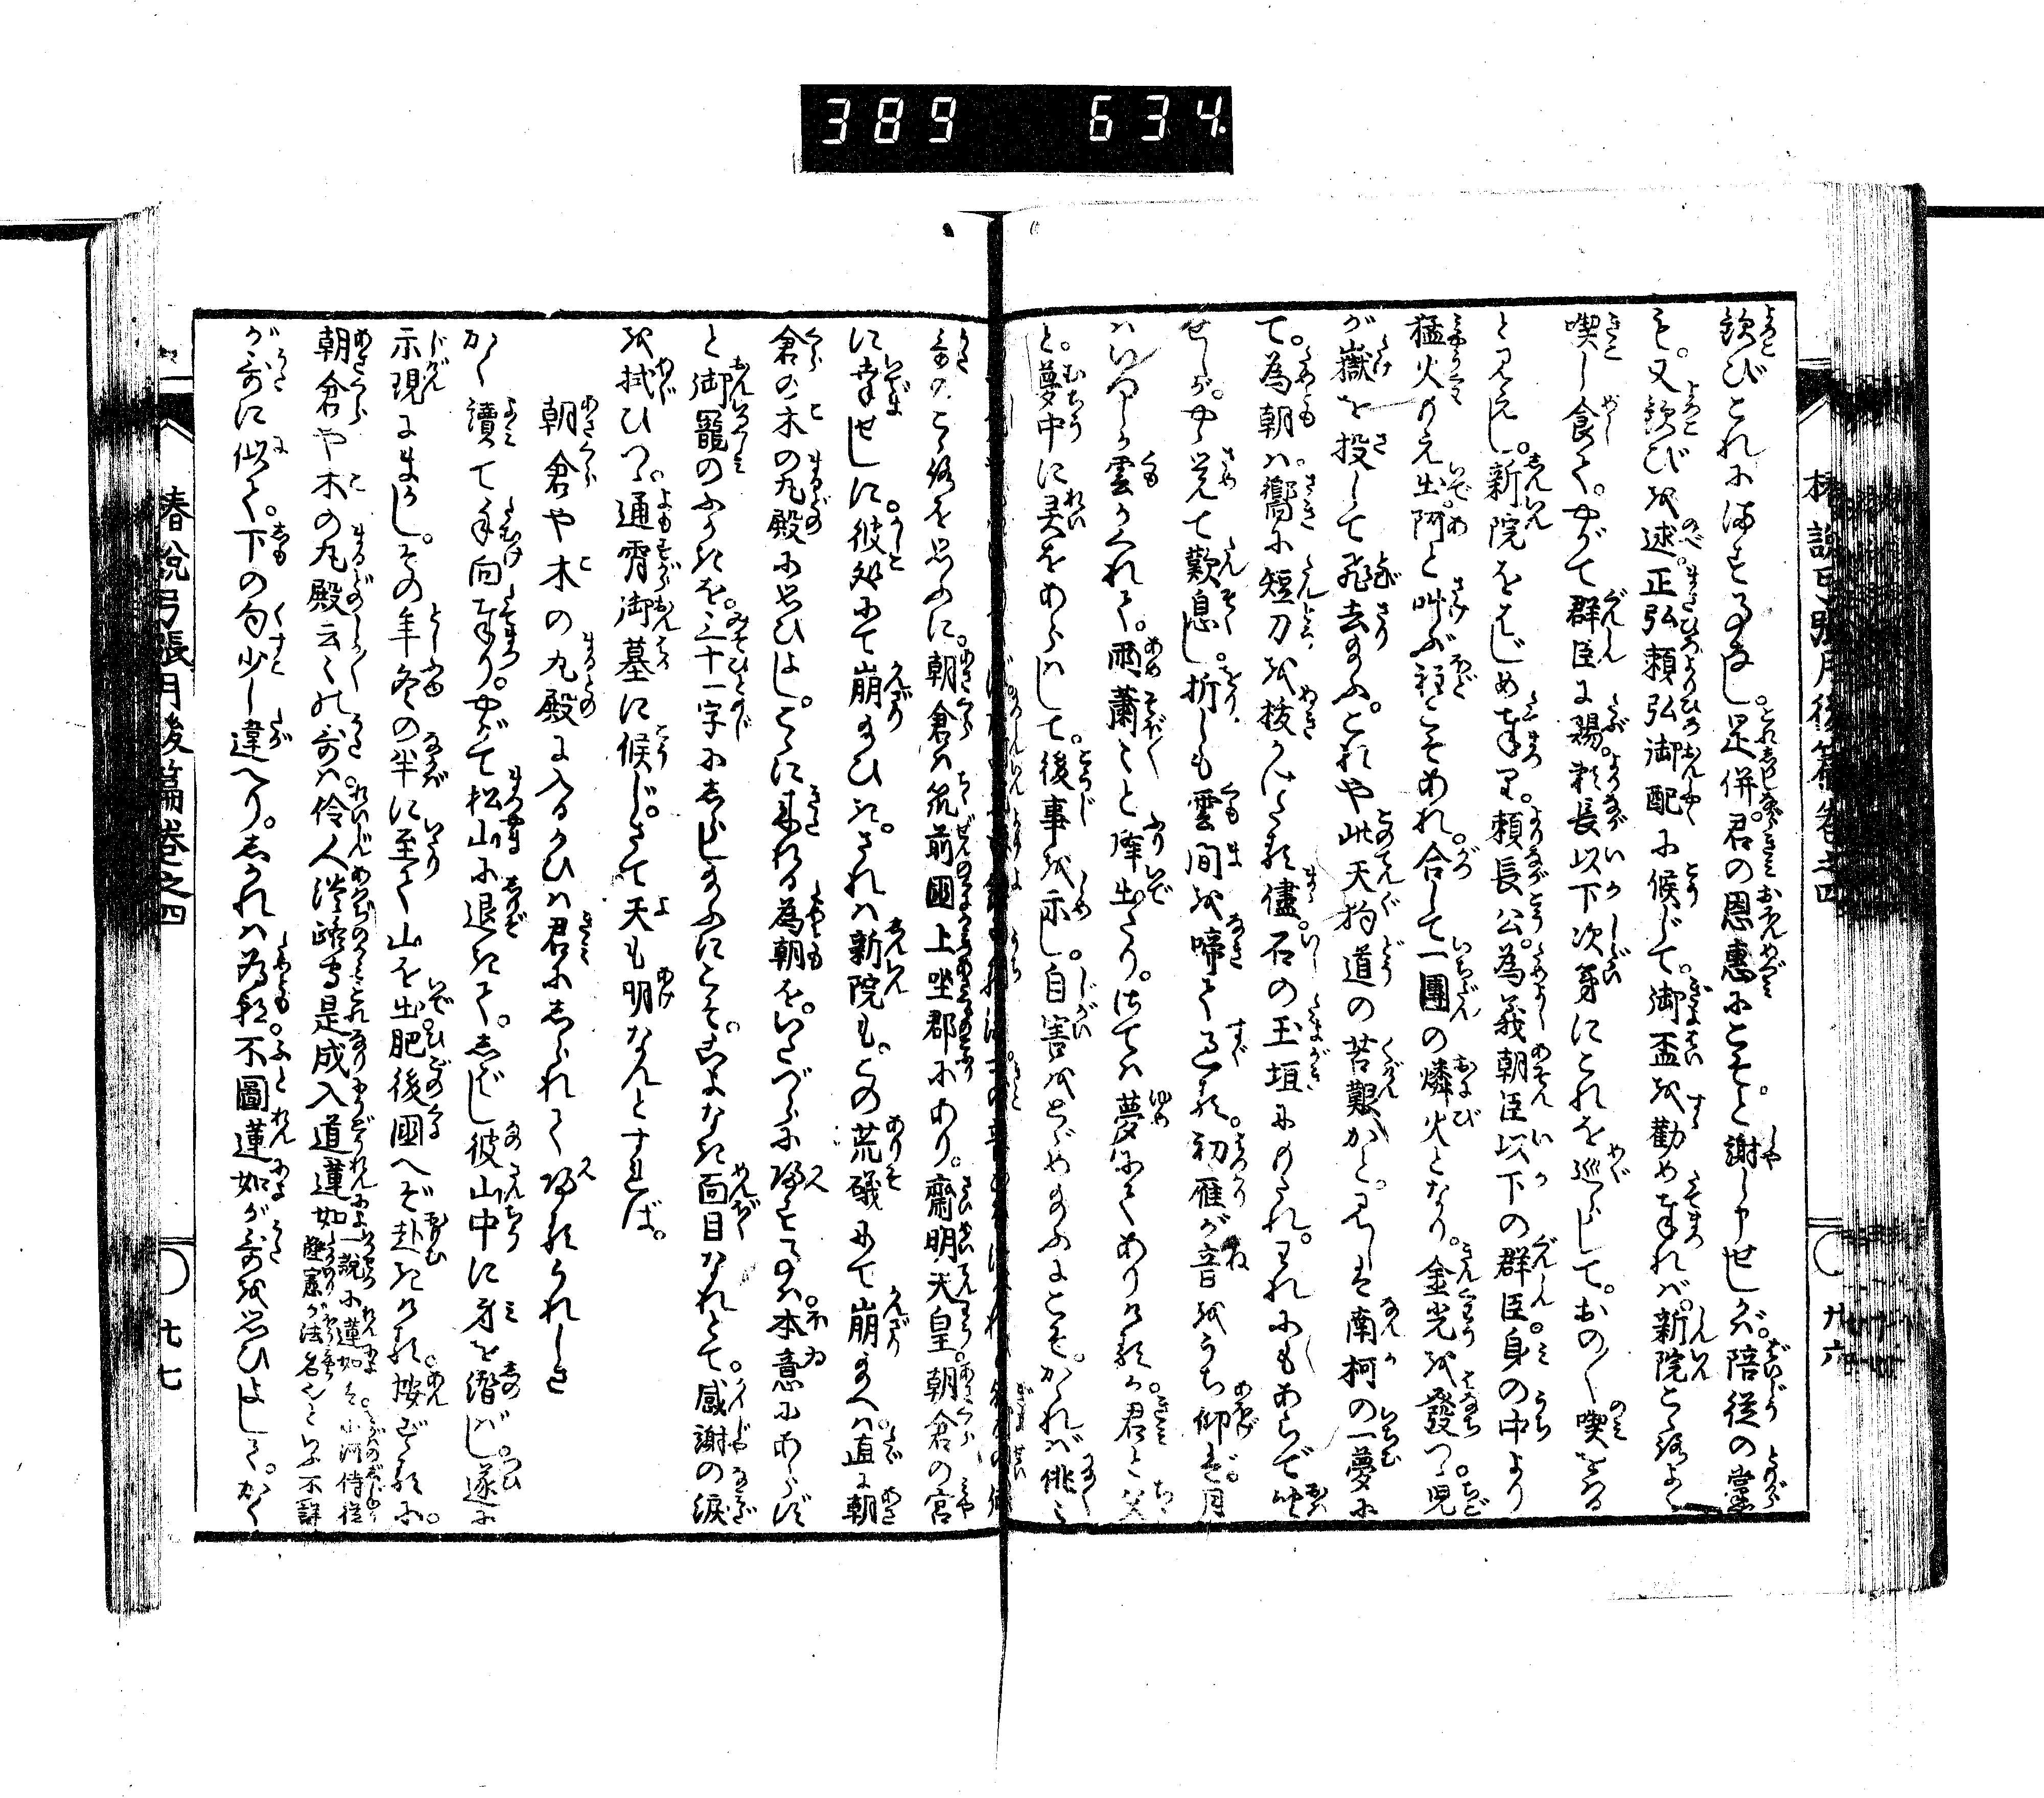 389 634
歓びこれにますことなし。是併君の恩恵にこそと謝し申せしが。陪従の党
も。又歓びを述。正弘頼弘御配に候じて。御盃を勧め奉れば。新院こゝろよく
喫し食て。やがて群臣に賜。頼長以下次第にこれを巡らして。おの〱喫をる
と見えし。新院をはじめ奉り。頼長公。為義朝臣以下の群臣。身の中より
猛火のえ出。阿と叫ぶ程こそあれ。合して一団の燐火となり。金光を発つ。児
が嶽を投して飛去給ふ。これや此天狗道の苦艱かと。見しは南柯の一夢に
て。為朝は。嚮に短刀を抜かけたる儘。石の玉垣にのられ。われにもあらで
せしが。やゝ覚て歎息し。折しも雲間を啼て過る。初雁が音をうち仰げば。月
はいつしか雲がくれて。雨蕭々と降出たり。さては夢にてありけるか。君と父
と。夢中に灵をあらはして。後事を示し。自害をとゞめ給ふにこそ。かゝれば俳々
こゝろを思ふに。朝倉は筑前国上坐郡にあり。斎明天皇。朝倉の宮
に幸せしに。彼処にて崩給ひき。されば新院も。この荒磯にて崩給へば。直に朝
倉の木の丸殿に思ひよし。こゝに来れる為朝を。いたづらに帰すは。本意にあらず
と御寵のふかきを。三十一字にしらし給ふにこそ。こよなき面目なれとて。感謝の涙
を拭ひつゝ。通宵御墓に候じ。さて天も明なんとすれば。
朝倉や木の丸殿に入るかひは君にしられて帰るうれしき
かく読て手向奉り。やがて松山に退きて。しばし彼山中に身を潜し。遂に
示現にまかし。その年冬の半に至て山を出。肥後国へぞ赴きける。按ずるに。
朝倉や木の丸殿云々の哥は。伶人淡路守是成入道蓮如一説に蓮如は。小河侍従隆憲が法名也といふ不詳
が哥に似て。下の句少し違へり。しかれば為朝。不図蓮如が哥を思ひよし歟。かく
椿説弓張月後篇巻之四
廿六
椿説弓張月後篇巻之四
七七